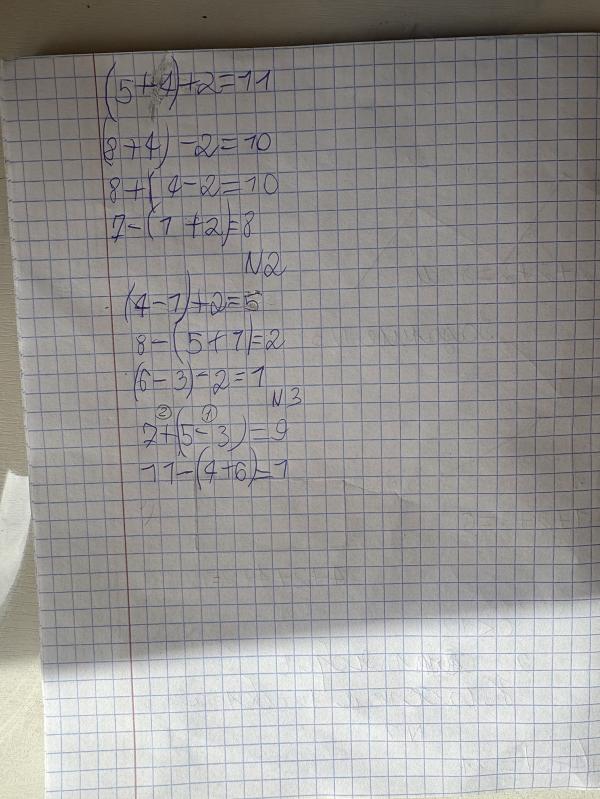 (5+4)+2=11
(8+4)-2=10
8+(4-2=10
7-(1+2)=8
N2
(4-1)+2=5
8-(5+1)=2
(6-3)-2=1
N3
② ①
7+(5-3)=9
11-(4+6)=1